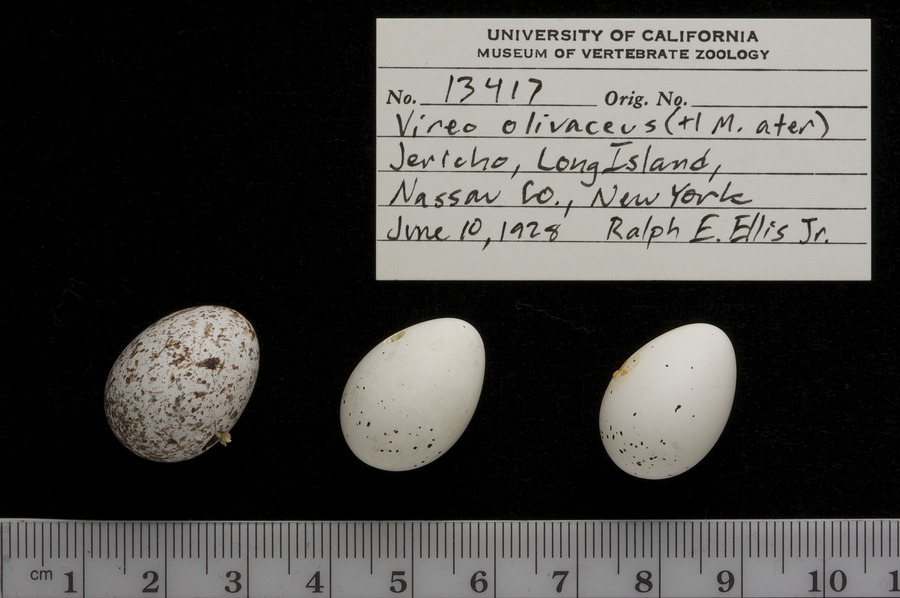 UNIVERSITY OF CALIFORNIA
MUSEUM OF VERTEBRATE ZOOLOGY
No. 13417 Orig. No.
Vireo olivaceus (+1 M. ater)
Jericho, Long Island,
Nassau Co., New York
June 10, 1928 Ralph E. Ellis Jr.
cm 1 2 3 4 5 6 7 8 9 10 1